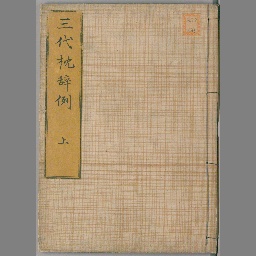 三代枕辞例 上